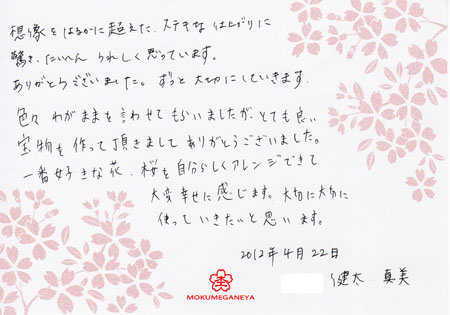 想像をはるかに超えた、ステキな仕上がりに
驚き、たいへん うれしく思っています。
ありがとうございました。ずっと大切にしていきます。
色々 わがままを言わせてもらいましたが、とても良い
宝物を作って頂きまして ありがとうございました。
一番好きな花、桜を自分らしくアレンジできて
大変幸せに感じます。大切に大切に
使っていきたいと思います。
2012年4月22日
健太・真美
MOKUMEGANEYA